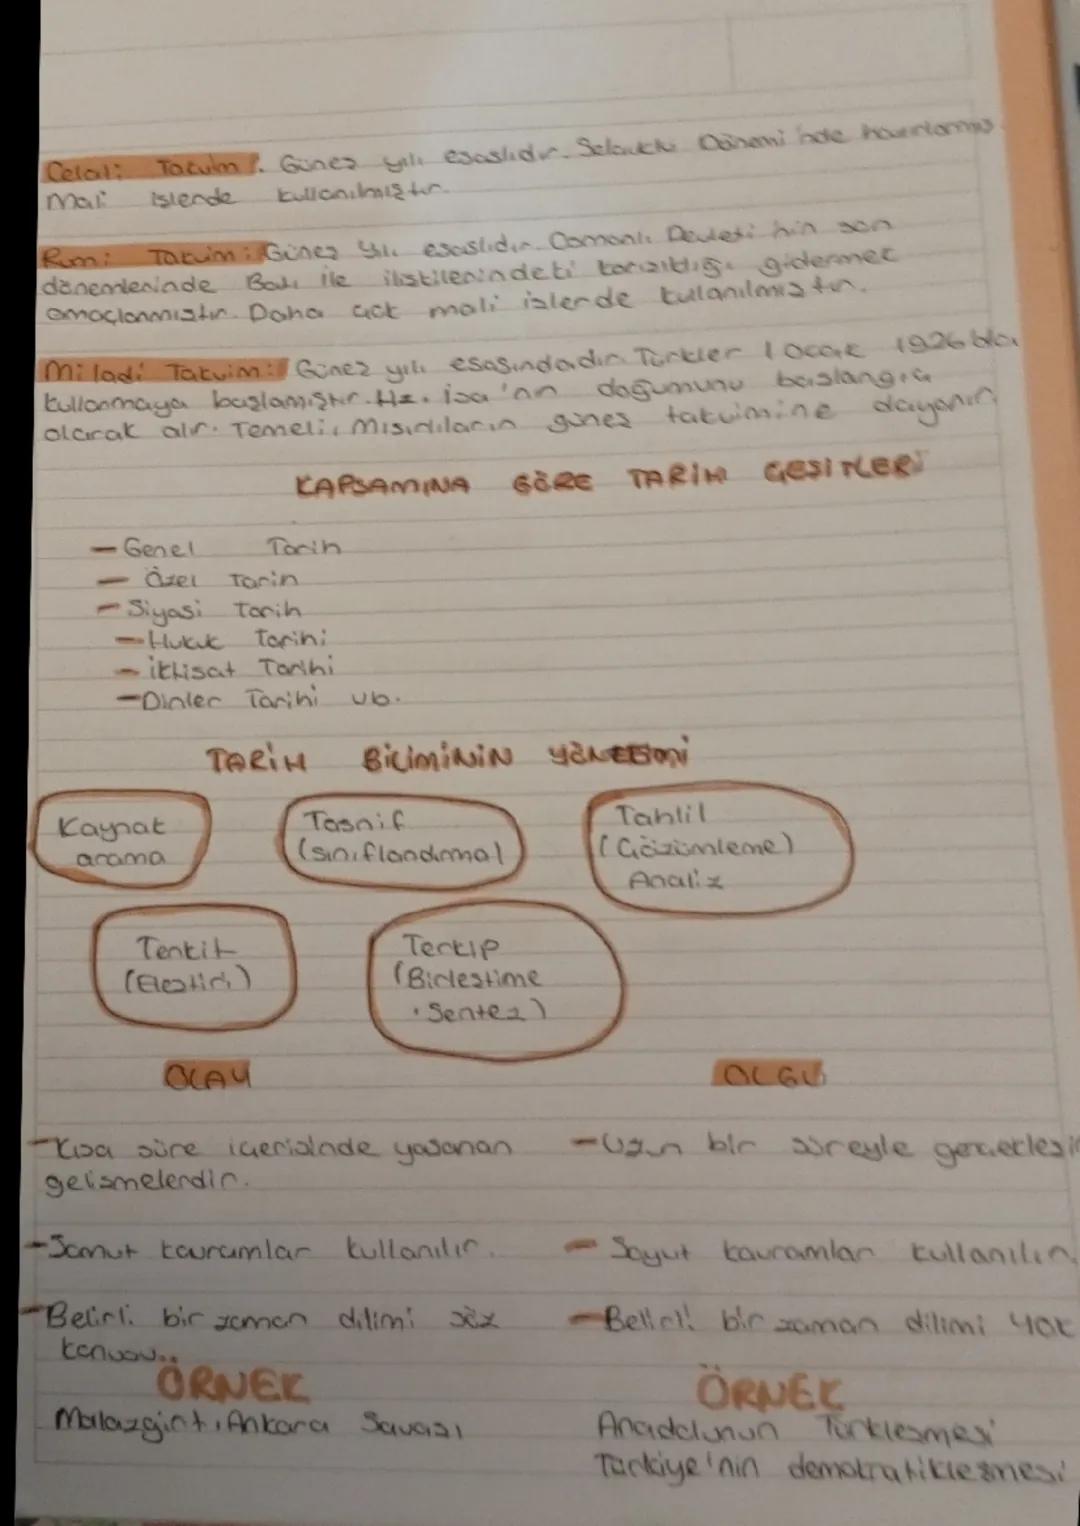 Celali Takvim: Güneş yılı esaslıdır. Selçuklu Dönemi'nde hazırlanmış
Mali işlerde kullanılmıştır.
Rumi Takvim: Güneş yılı esaslıdır. Osmanlı Devleti'nin son
dönemlerinde Batı ile ilişkilerindeki karışıklığı gidermek
amaçlanmıştır. Daha çok mali işlerde kullanılmıştır.
Miladi Takvim: Güneş yılı esasındadır. Türkler 1 Ocak 1926'da
kullanmaya başlamıştır. Hz. İsa'nın doğumunu başlangıç
olarak alır. Temeli, Mısırlıların güneş takvimine dayanır.
KAPSAMINA GÖRE TARİH ÇEŞİTLERİ
- Genel Tarih
- Özel Tarih
- Siyasi Tarih
- Hukuk Tarihi
- İktisat Tarihi
- Dinler Tarihi vb.
TARİH BİLİMİNİN YÖNTEMİ
Kaynak
arama
Tasnif
(sınıflandırma)
Tahlil
(Çözümleme)
Analiz
Tenkit
(Eleştiri)
Terkip
(Birleştime
Sentez)
OLAY
OLGU
- Kısa süre içerisinde yaşanan
gelişmelerdir.
- Uzun bir süreyle gerçekleşir
- Somut kavramlar kullanılır.
- Soyut kavramlar kullanılır.
- Belirli bir zaman dilimi söz
konusu..
- Belirli bir zaman dilimi yok
ÖRNEK
Malazgirt, Ankara Savaşı
ÖRNEK
Anadolunun Türkleşmesi
Türkiye'nin demokratikleşmesi